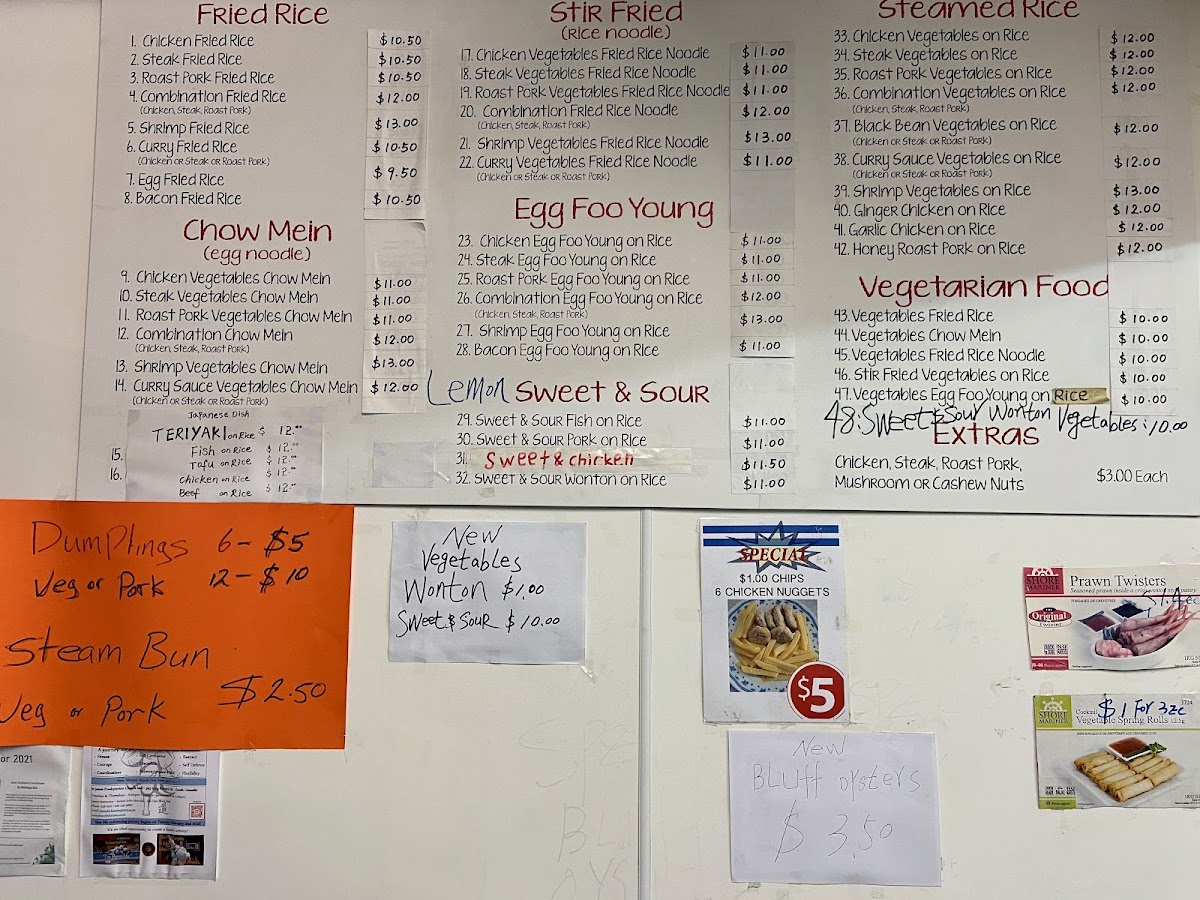 Fried Rice
1. Chicken Fried Rice $10.50
2. Steak Fried Rice $10.50
3. Roast Pork Fried Rice $10.50
4. Combination Fried Rice $12.00
(Chicken, Steak, Roast Pork)
5. Shrimp Fried Rice $13.00
6. Curry Fried Rice $10.50
(Chicken or Steak or Roast Pork)
7. Egg Fried Rice $9.50
8. Bacon Fried Rice $10.50
Chow Mein
(egg noodle)
9. Chicken Vegetables Chow Mein $11.00
10. Steak Vegetables Chow Mein $11.00
11. Roast Pork Vegetables Chow Mein $11.00
12. Combination Chow Mein $12.00
(Chicken, Steak, Roast Pork)
13. Shrimp Vegetables Chow Mein $13.00
14. Curry Sauce Vegetables Chow Mein $12.00
(Chicken or Steak or Roast Pork)
Japanese Dish
TERIYAKI on Rice $12.00
15. Fish on Rice $12.00
Tofu on Rice $12.00
16. chicken on Rice $12.00
Beef on Rice $12.00
Stir Fried
(rice noodle)
17. Chicken Vegetables Fried Rice Noodle $11.00
18. Steak Vegetables Fried Rice Noodle $11.00
19. Roast Pork Vegetables Fried Rice Noodle $11.00
20. Combination Fried Rice Noodle $12.00
(Chicken, Steak, Roast Pork)
21. Shrimp Vegetables Fried Rice Noodle $13.00
22. Curry Vegetables Fried Rice Noodle $11.00
(Chicken or Steak or Roast Pork)
Egg Foo Young
23. Chicken Egg Foo Young on Rice $11.00
24. Steak Egg Foo Young on Rice $11.00
25. Roast Pork Egg Foo Young on Rice $11.00
26. Combination Egg Foo Young on Rice $12.00
(Chicken, Steak, Roast Pork)
27. Shrimp Egg Foo Young on Rice $13.00
28. Bacon Egg Foo Young on Rice $11.00
Lemon Sweet & Sour
29. Sweet & Sour Fish on Rice $11.00
30. Sweet & Sour Pork on Rice $11.00
31. Sweet & chicken $11.50
32. Sweet & Sour Wonton on Rice $11.00
Steamed Rice
33. Chicken Vegetables on Rice $12.00
34. Steak Vegetables on Rice $12.00
35. Roast Pork Vegetables on Rice $12.00
36. Combination Vegetables on Rice $12.00
(Chicken, Steak, Roast Pork)
37. Black Bean Vegetables on Rice $12.00
(Chicken or Steak or Roast Pork)
38. Curry Sauce Vegetables on Rice $12.00
(Chicken or Steak or Roast Pork)
39. Shrimp Vegetables on Rice $13.00
40. Ginger Chicken on Rice $12.00
41. Garlic Chicken on Rice $12.00
42. Honey Roast Pork on Rice $12.00
Vegetarian Food
43. Vegetables Fried Rice $10.00
44. Vegetables Chow Mein $10.00
45. Vegetables Fried Rice Noodle $10.00
46. Stir Fried Vegetables on Rice $10.00
47. Vegetables Egg Foo Young on Rice $10.00
48. Sweet & Sour Wonton Vegetables :10.00
Extras
Chicken, Steak, Roast Pork,
Mushroom or Cashew Nuts $3.00 Each
Dumplings 6 - $5
Veg or Pork 12 - $10
Steam Bun
Veg or Pork $2.50
New
Vegetables
Wonton $1.00
Sweet & Sour $10.00
SPECIAL
$1.00 CHIPS
6 CHICKEN NUGGETS
$5
New
Bluff oysters
$3.50
SHORE MARINER
Prawn Twisters
Original
Twister
SHORE MARINER
Cocktail $1 For 3
Vegetable Spring Rolls 12.5g
or 2021